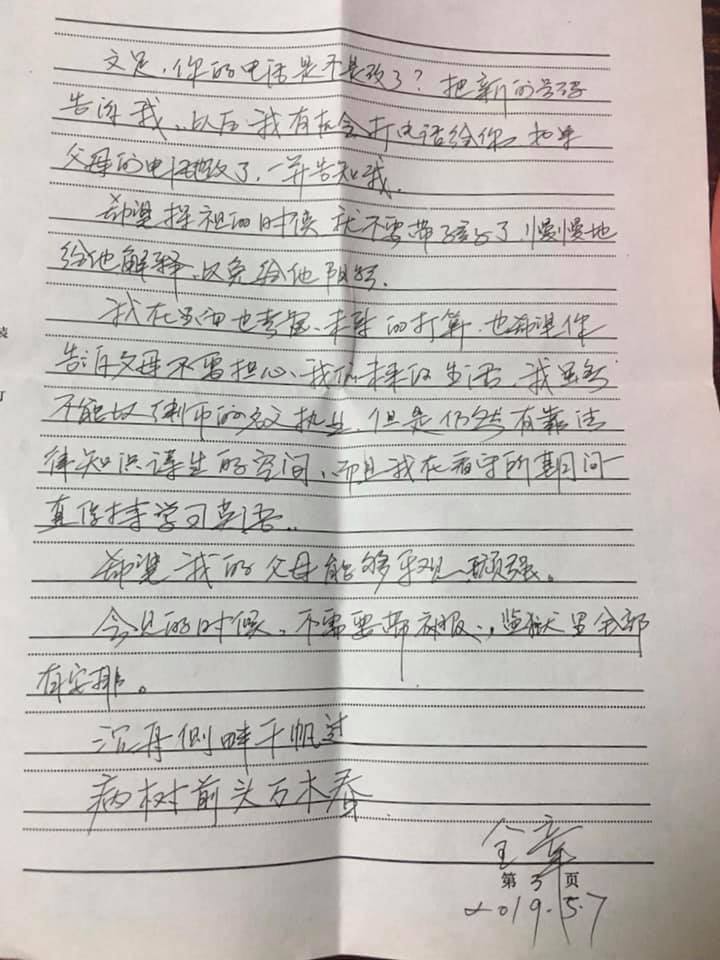 文足，你的电话是不是改了？把新的号码
告诉我，以后我有机会打电话给你。如果
父母的电话改了，一并告知我。
希望探视的时候就不要带孩子了，慢慢地
给他解释，以免给他阴影。
我在里面也考虑未来的打算，也希望你
告诉父母不需担心我们未来的生活，我虽然
不能以律师的名义执业，但是仍然有靠法
律知识谋生的空间，而且我在看守所期间一
直保持学习英语。
希望我的父母能够乐观、顽强。
会见的时候，不需要带衣服，监狱里全部
有安排。
沉舟侧畔千帆过
病树前头万木春
全章
第3页
2019.5.7